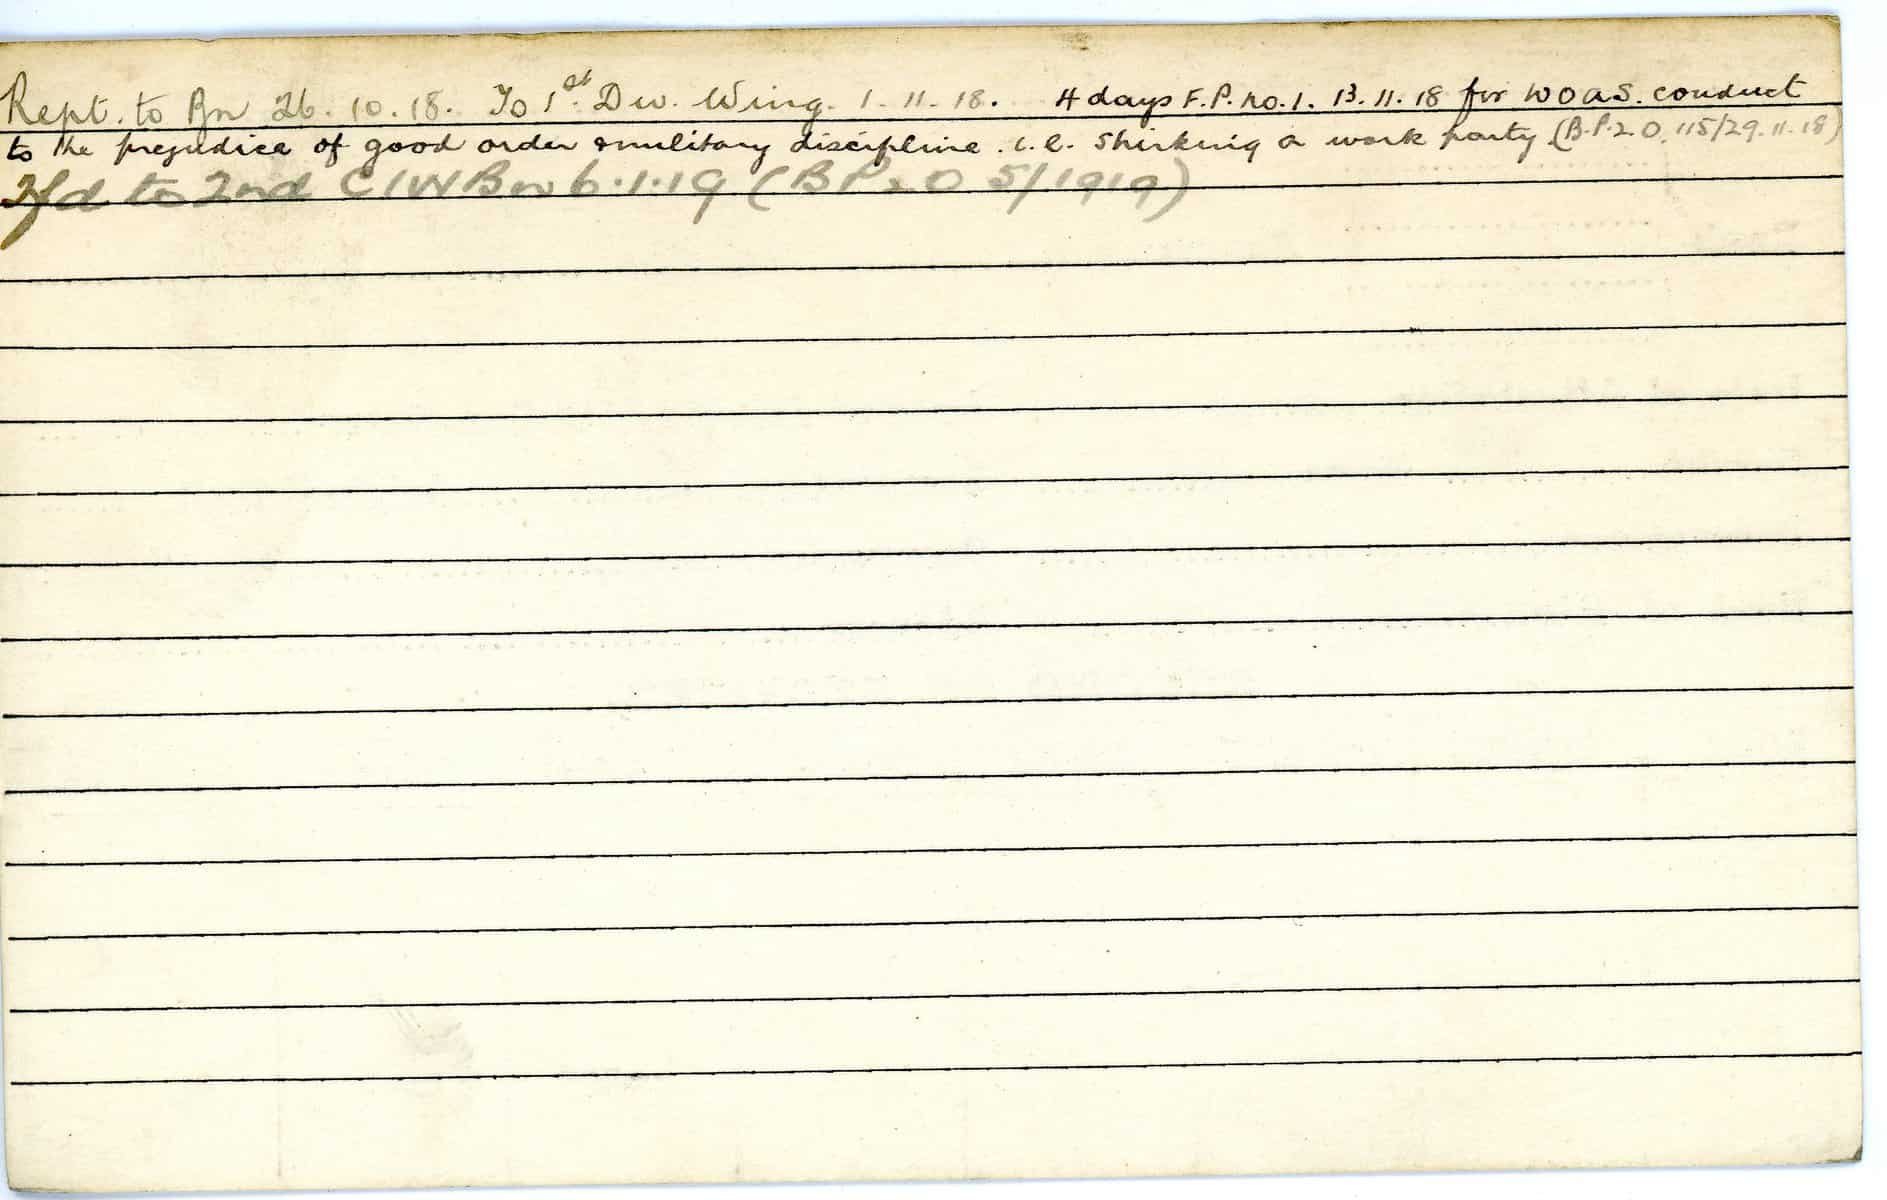 Rept. to Bn 26.10.18. To 1st Div. Wing. 1.11.18. 4 days F.P. no.1. 13.11.18 for WOAS. conduct
to the prejudice of good order & military discipline. i.e. Shirking a work party (B.P.2.O. 115/29.11.18)
Tfd to 2nd CIW Bn 6.1.19 (BP2O 5/1919)